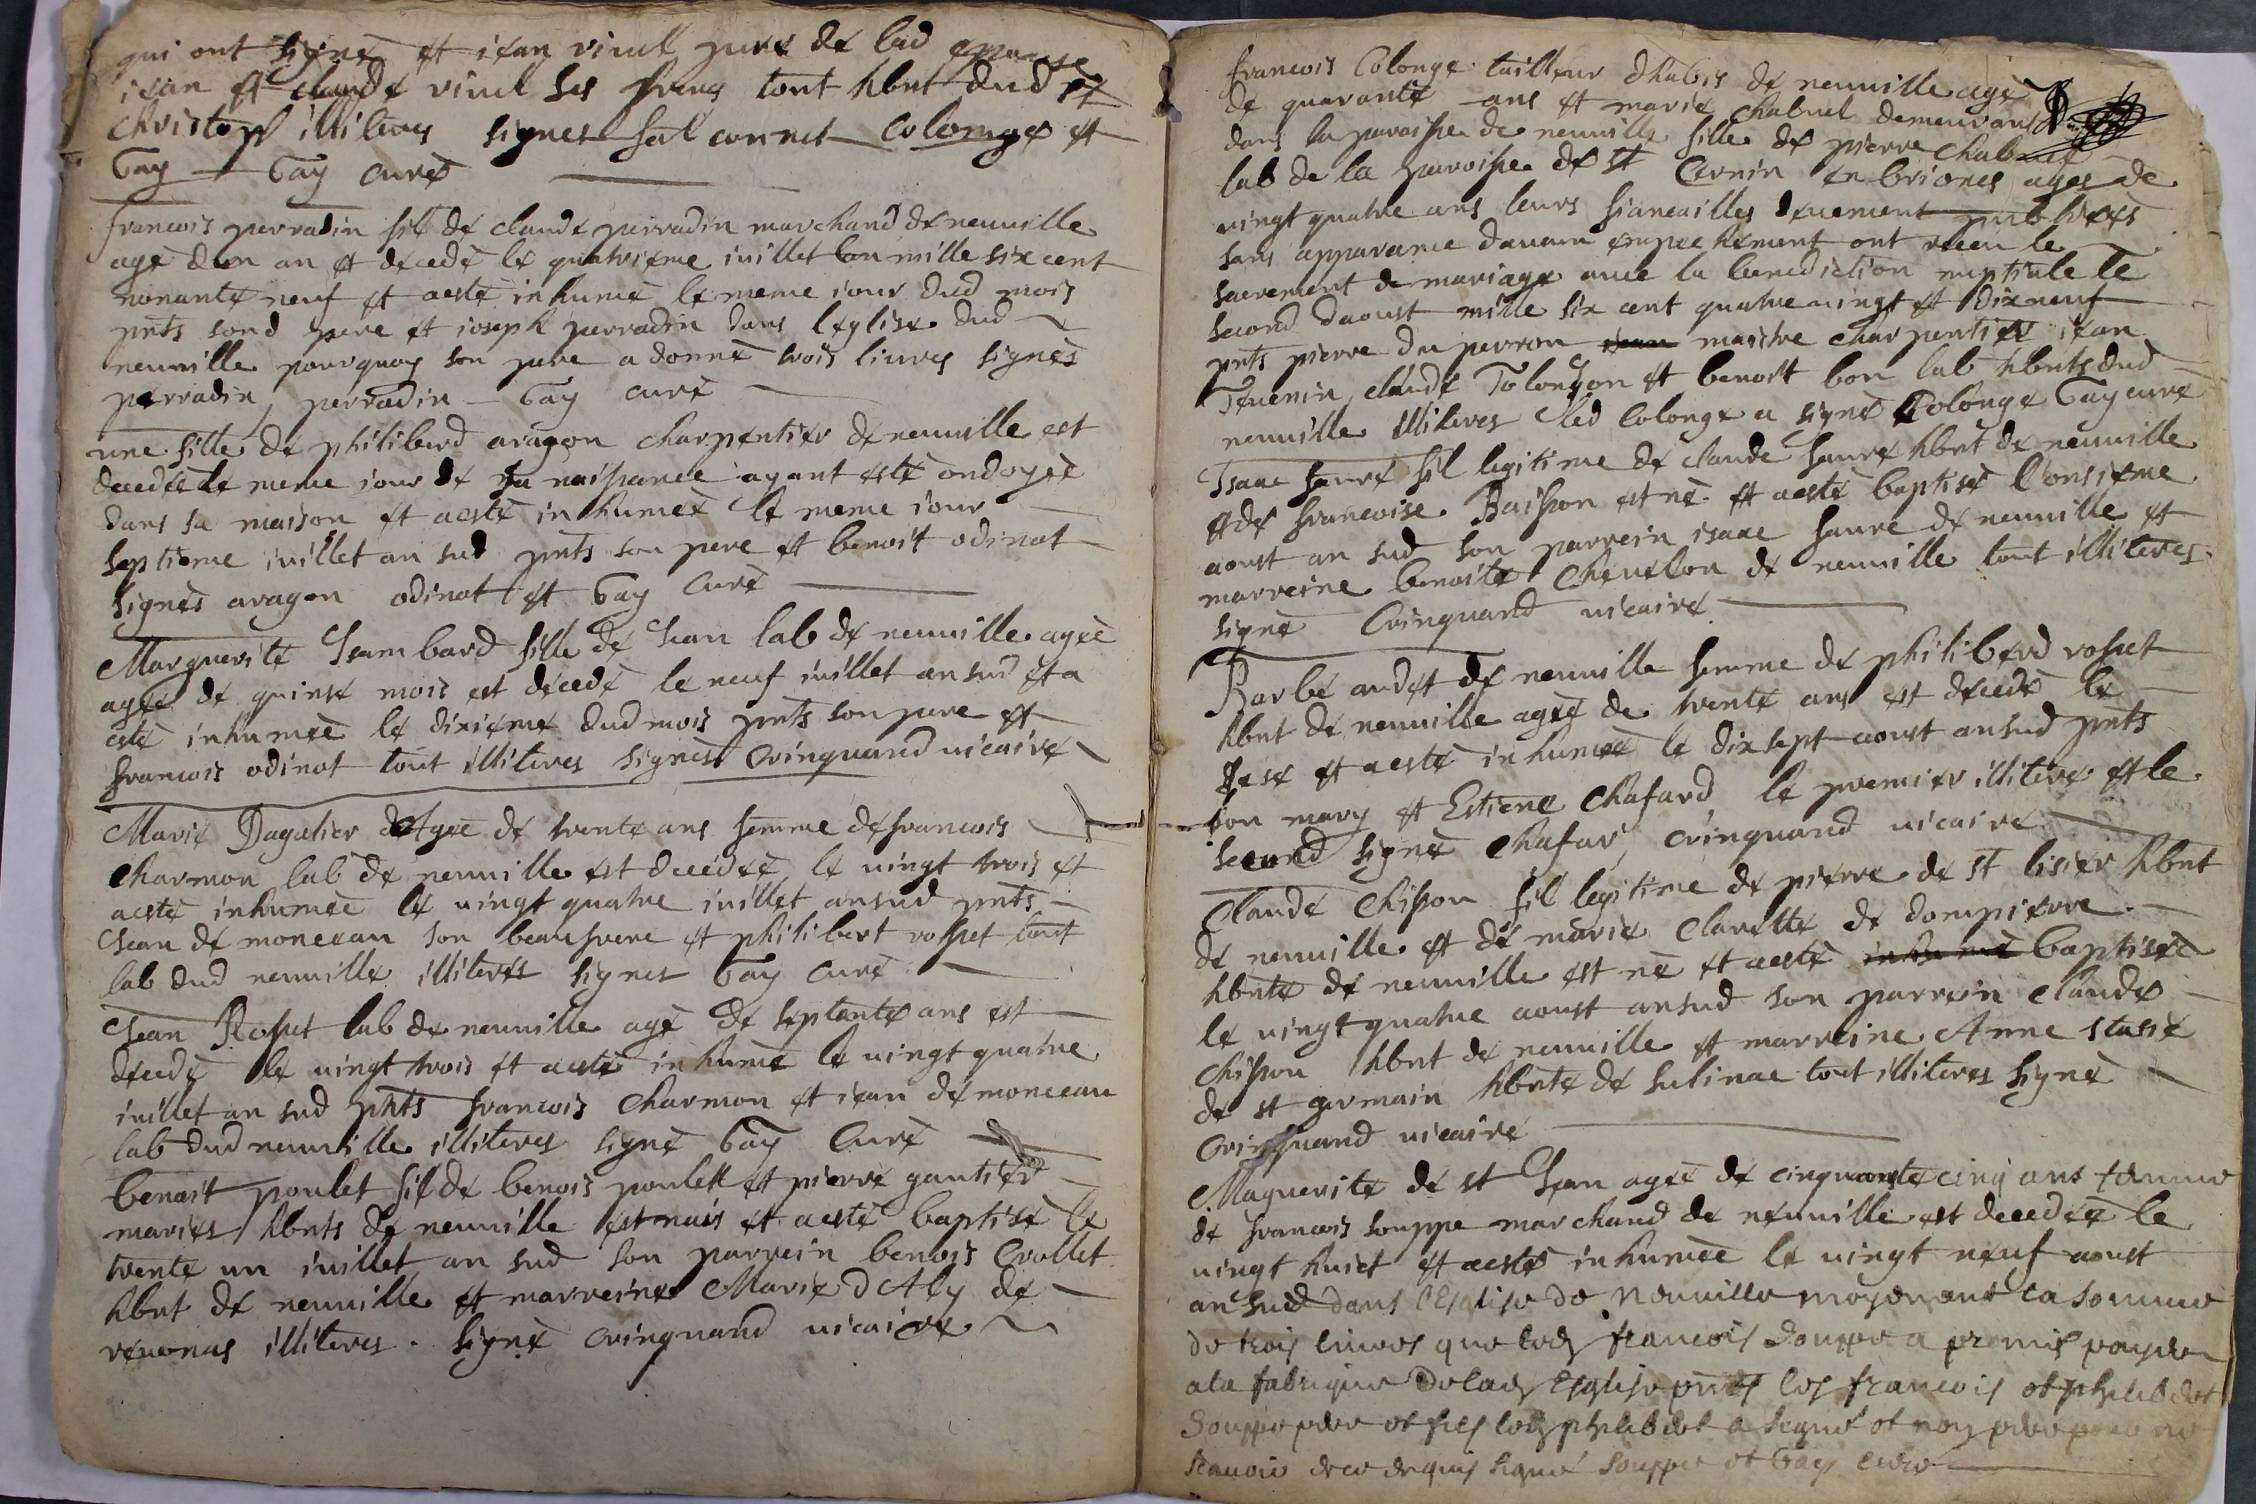 qui ont signé et iean vieul pere de lad epouse
iean et claude vieul ses freres tout hbnt dud st
christoph illiteres signes fatconnet Colonge et
Gay Gay curé
francois perradin fil de claude perradin marchand de neuuille
agé dun an et decedé le quatrieme iuillet lan mille six cent
nonante neuf et aesté inhumé le meme iour dud mois
pnts sond pere et ioseph perradin dans leglise dud
neuuille pourquoy son pere a donné trois liures signés
perradin, perradin Gay curé
une fille de philiberd aragon charpentier de neuuille est
decedée le meme iour de sa naissance ayant esté ondoyée
dans sa maison et aesté inhumée le meme iour
septieme iuillet an sud pnts son pere et benoit odinot
signés aragon odinot et Gay curé
Marguerite Isambard fille de Jean lab de neuuille agée
agée de quinse mois est decedé le neuf iuillet ansud et a
esté inhumée le dixieme dud mois pnts son pere et
francois odinot tout illiteres signés Cringuand uicaire
Marie Dagalier Agée de trente ans femme de francois
charmon lab de neuuille est decedée le uingt trois et
aesté inhumée le uingt quatre iuillet ansud pnts
Jean de moneeau son beaufrere et philibert rosset tout
lab dud neuuille illiterés signes Gay curé
Jean Rosset lab de neuuille agé de septente ans est
decedé le uingt trois et aesté inhumé le uingt quatre
iuillet an sud pnts francois Charmon et iean de monceau
lab dud neuuille illiteres signé Gay Curé
benoit poulet fil de benois poulett et pierre gautier
mariés hbnts de neuuille est nais et aesté baptisé le
trente un iuillet an sud son parrein benois Crollet
hbnt de neuuille et marreine Marie d Aly de
reuonas illiteres. signé cringuand uicaire
francois Colonge tailleur dhabis de neuuille agé
de quarante ans et marie Chabuel demeurans
dans la paroisse de neuuille fille de pierre Chabuel
lab de la paroisse de st Cernin en briones agée de
uingt quatre ans leurs fiancailles deuement publiées
sans apparance daucun empechement ont receu le
sacrement de mariage auec la benediction nuptiale le
second daoust mille six cent quatre uingt et dix neuf
pnts pierre du perron maistre charpentier iean
Teuenin, claude Tolongon et benoit bon lab hbnts dud
neuuille illiteres Led Colonge a signé Colonge Gay curé
Isaac faure fil legitime de claude faure hbnt de neuuille
et de francoise Buisson est né et aesté baptisé l'onsieme
aoust an sud son parrein isaac faure de neuuille et
marreine benoite Cheuelon de neuuille tout illiteres
signé Cringuand uicaire
Barbe audet de neuuille femme de philiberd rosset
hbnt de neuuille agée de trente ans est decedé le
sese et aesté inhumée le dixsept aoust ansud pnts
son mary et Estiene Chafard le premier illitere et le
second signé Chafar, cringuand uicaire
Claude Chisson fil legitime de pierre de st lisier hbnt
de neuuille et de marie Clarette de dompierre
hbnte de neuuille est né et aesté inhumé baptisée
le uingt quatre aoust ansud son parrein Claude
Chisson hbnt de neuuille et marreine Anne stasie
de st germain hbnte de sulinac tout illiteres signé
Cringuand uicaire
Maguerite de st Jean agée de cinquante cinq ans femme
de francois souppe marchand de neuuille est decedée le
uingt huict et aesté inhumée le uingt neuf aoust
an sud dans l'Esglise de Neuuille moyenant la somme
de trois liures que led francois Souppe a promis payer
a la fabrique de lad Esglise pnts led francois et philibert
Souppe pere et fils led philibert a signé et non pere pour ne
scauoir de ce enquis signé Souppe et Gay curé